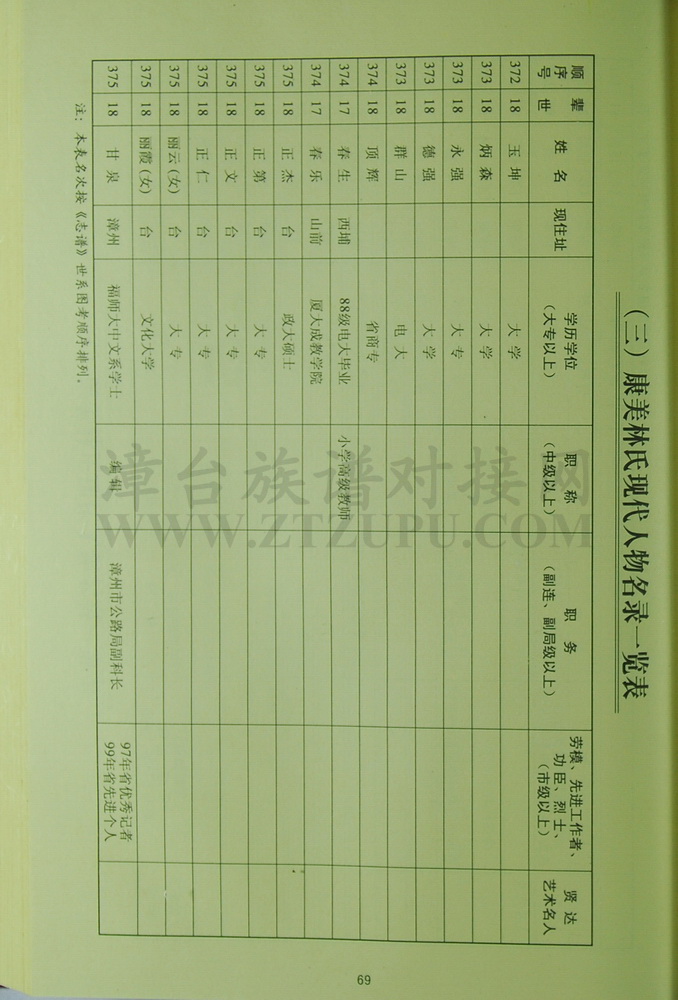 （三）康美林氏现代人物名录一览表
顺序号 辈世 姓名 现住址 学历学位（大专以上） 职称（中级以上） 职务（副连、副局级以上） 劳模、先进工作者、功臣、烈士、（市级以上） 贤达艺术名人
372 18 玉坤 大学
373 18 炳森 大学
373 18 永强 大专
373 18 德强 大学
373 18 群山 电大
374 18 顶辉 省商专
374 17 春生 西埔 88级电大毕业 小学高级教师
374 17 春乐 山前 厦大成教学院
375 18 正杰 台 政大硕士
375 18 正第 台 大专
375 18 正文 台 大专
375 18 正仁 台 大专
375 18 丽云(女) 台 大专
375 18 丽霞(女) 台 文化大学
375 18 甘泉 漳州 福师大中文系学士 编辑 漳州市公路局副科长 97年省优秀记者 99年省先进个人
注：本表名次按《志谱》世系图考顺序排列。
69
漳台族谱对接网
WWW.ZTZUPU.COM